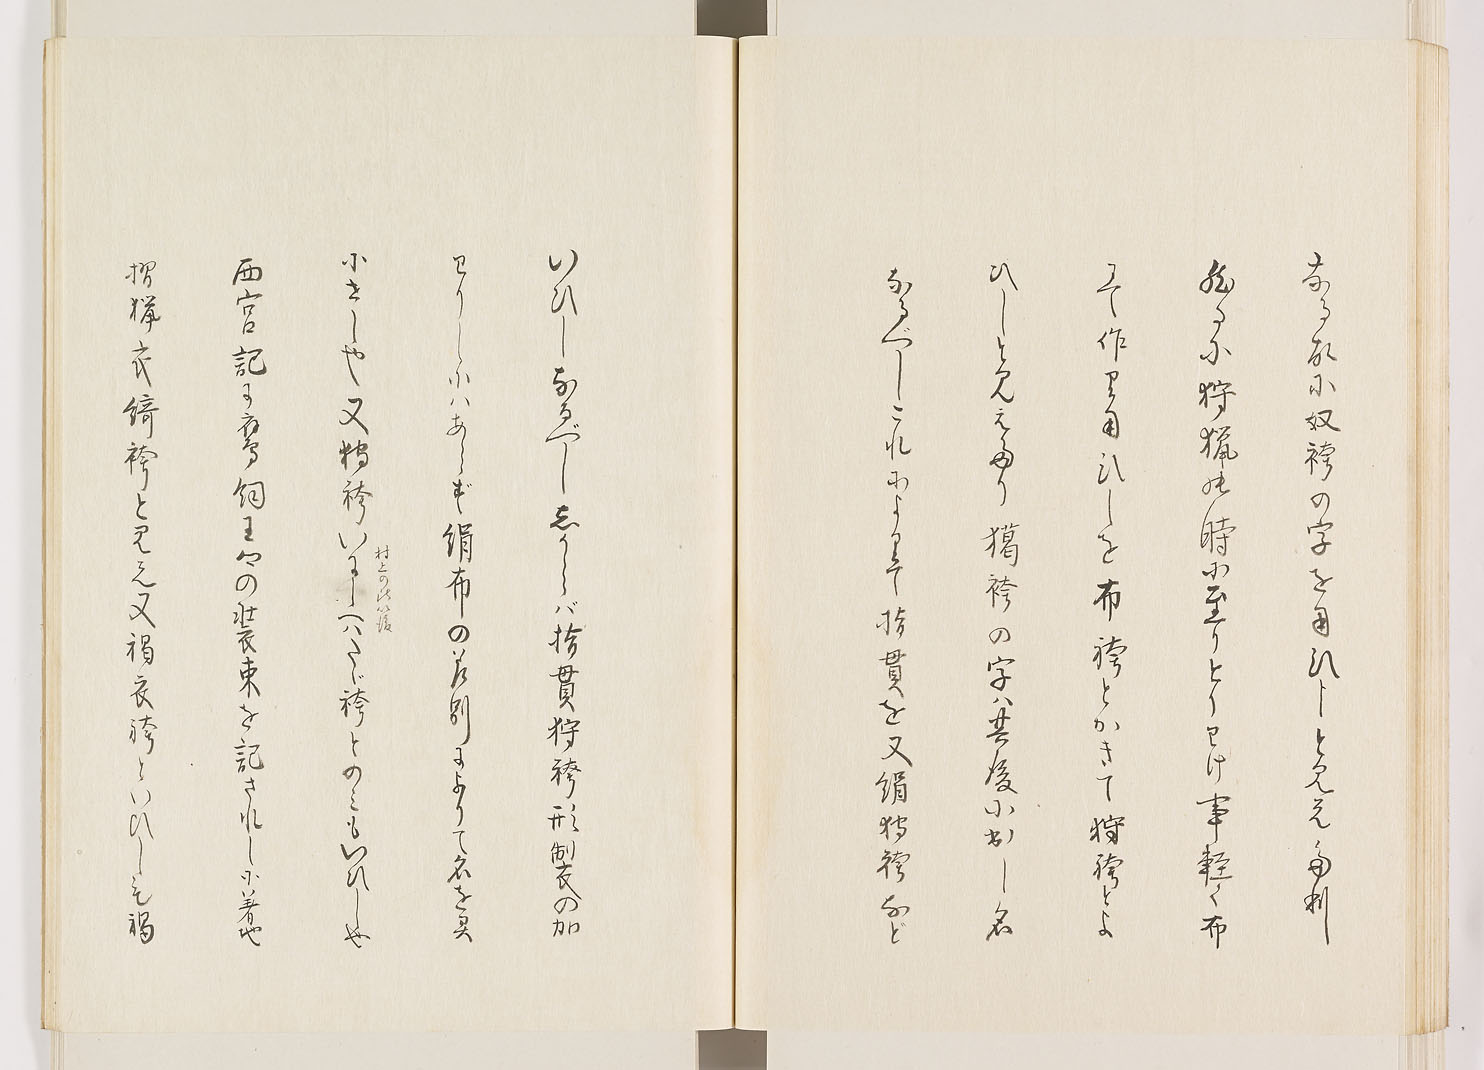 なる故に奴袴の字を用ひしと見えたり
然るに狩猟の時に至りとりわけ事軽く布
にて作り用ひしを布袴とかきて狩袴とよ
ひしと見えたり 獦袴の字ハ其後に出し名
なるべしこれによりて指貫を又絹狩袴など
いひしなるべししからバ指貫狩袴形制衣の加
わりしにハあらず絹布の差別によりて名を異
にせしや又狩袴いにしへハたゞ袴とのミもいひしや
村上の
西宮記に鷹飼王卿の装束を記されしに着
摺猟衣綺袴と見え又褐衣袴といひしも褐